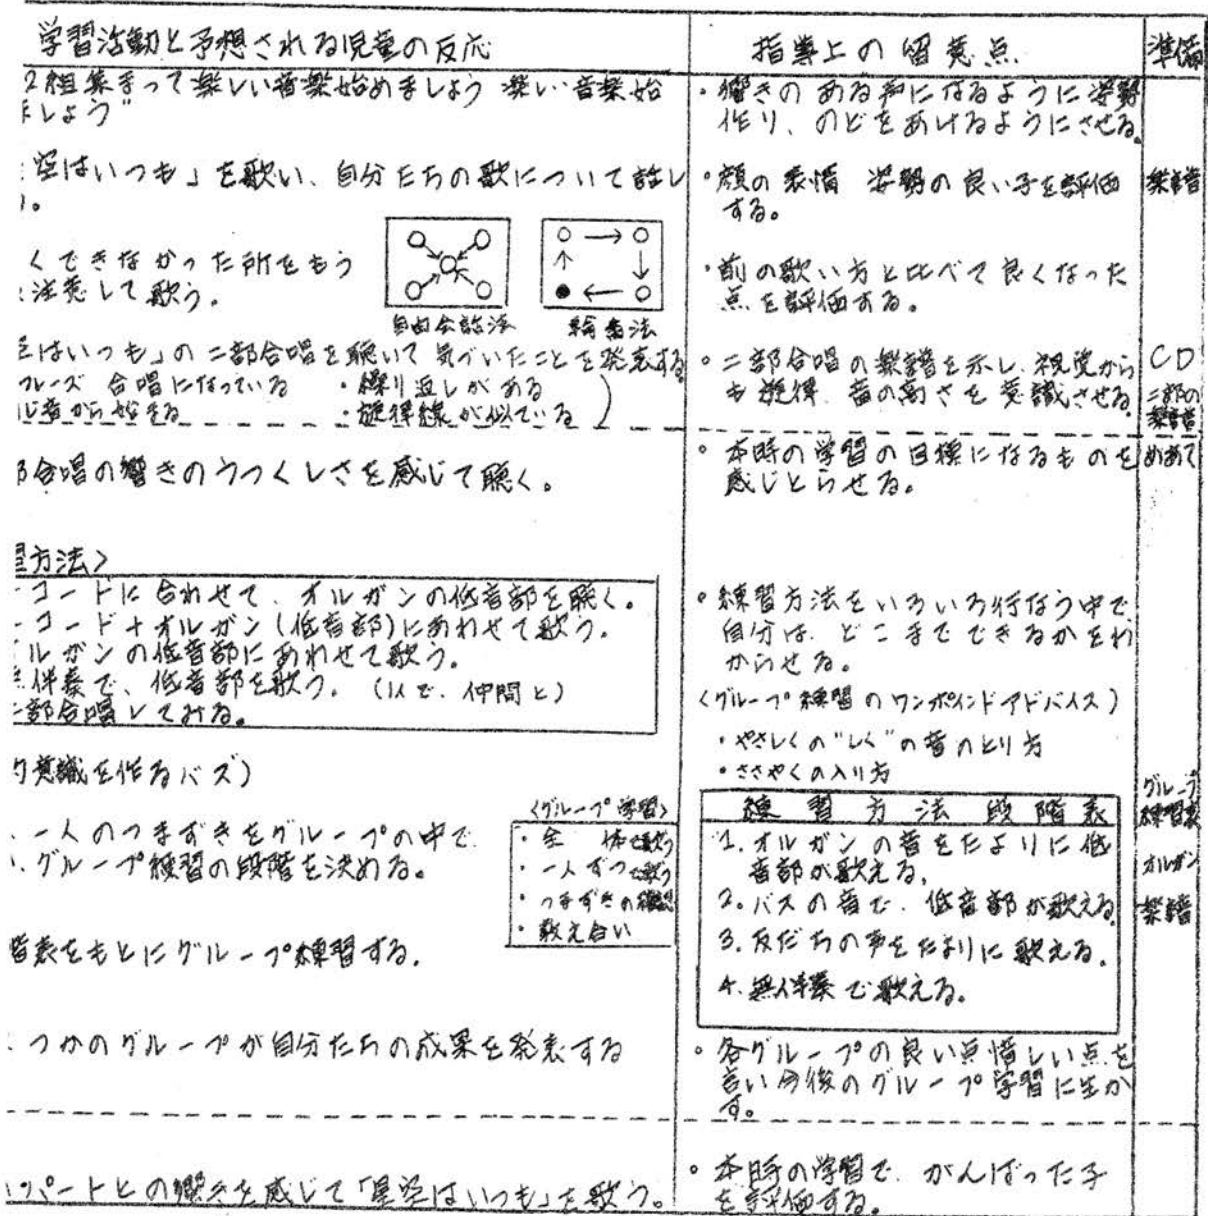 学習活動と予想される児童の反応
2組集まって楽しい音楽始めましょう 楽しい音楽始
ましょう"
空はいつも」を歌い、自分たちの歌について話し
くできなかった所をもう
注意して歌う。
自由会話法
輪番法
はいつも」の二部合唱を聴いて気づいたことを発表する
フレーズ 合唱になっている ・繰り返しがある
じ音から始まる ・旋律線が似ている
部合唱の響きのうつくしさを感じて聴く。
習方法〉
コードに合わせて、オルガンの低音部を聴く。
コード+オルガン(低音部)にあわせて歌う。
ルガンの低音部にあわせて歌う。
無伴奏で、低音部を歌う。(1人で、仲間と)
二部合唱してみる。
的意識を作るバズ)
一人のつまずきをグループの中で
グループ練習の段階を決める。
〈グループ学習〉
・全 体で歌う
・一人ずつ歌う
・つまずきの確認
・教え合い
階表をもとにグループ練習する。
つかのグループが自分たちの成果を発表する
パートとの響きを感じて「星空はいつも」を歌う。
指導上の留意点
・響きのある声になるように姿勢
作り、のどをあけるようにさせる。
・顔の表情 姿勢の良い子を評価
する。
・前の歌い方と比べて良くなった
点を評価する。
。二部合唱の楽譜を示し、視覚から
も旋律、音の高さを意識させる。
。本時の学習の目標になるものを
感じとらせる。
。練習方法をいろいろ行なう中で
自分は、どこまでできるかをわ
からせる。
〈グループ練習のワンポインドアドバイス〉
・やさしくの"しく"の音のとり方
・ささやくの入り方
練習方法段階表
1. オルガンの音をたよりに低
音部が歌える。
2. バスの音で、低音部が歌える。
3. 友だちの声をたよりに歌える。
4. 無伴奏で歌える。
。各グループの良い点惜しい点を
言い今後のグループ学習に生か
す。
。本時の学習で、がんばった子
を評価する。
準備
楽譜
CD
二部の
楽譜
めあて
グループ
練習表
オルガン
楽譜